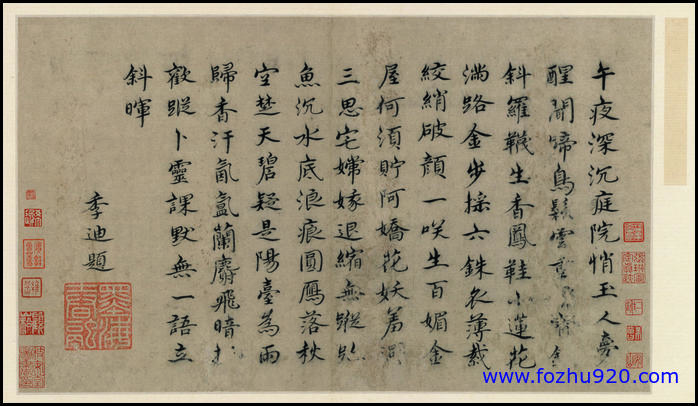 午夜深沉庭院悄玉人夢
醒聞啼鳥鬆雲重
斜羅襪生香鳳鞋小蓮花
滿路金步搖六銖衣薄裁
絞綃破顏一咲生百媚金
屋何須貯阿嬌花妖羞
三思宅嫦娥退縮無蹤
魚沉水底浪痕圓鴈落秋
空楚天碧疑是陽臺為雨
歸香汗氤氳蘭麝飛暗
歡蹤卜靈課默無一語立
斜暉
李迪題
www.fozhu920.com